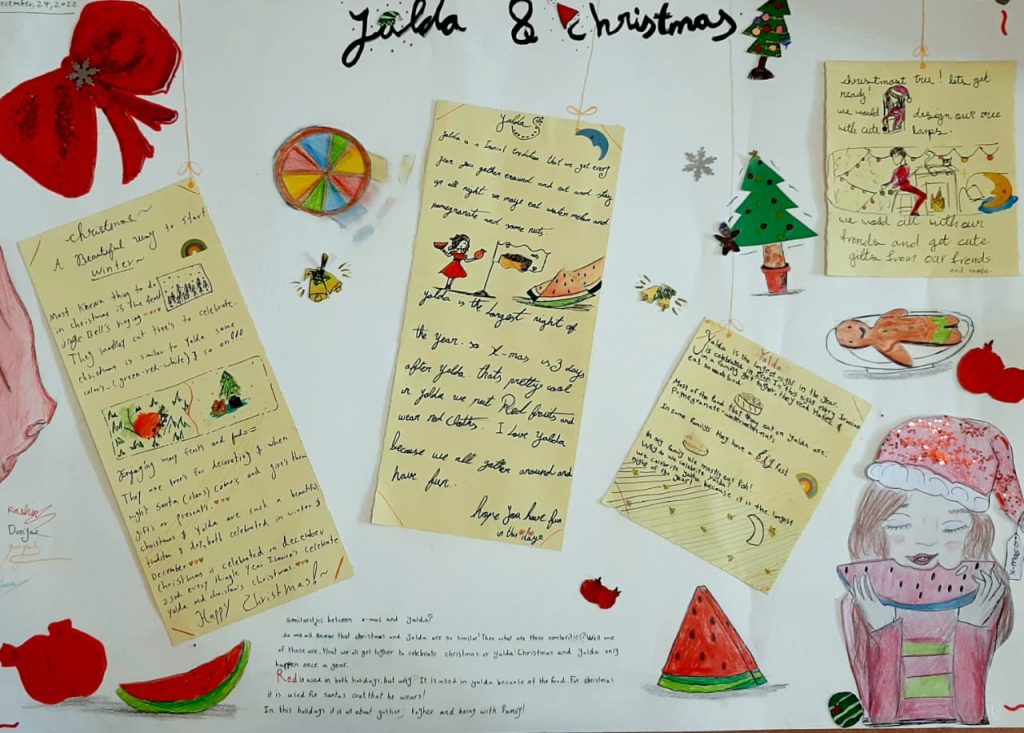 December, 24, 2022
Yalda & christmas
christmas~
A Beautiful way to start
winter~
Most known thing to do
in christmas is the
Jingle Bell's
They mostley cut tree's to celebrate
christmas is similar to Yalda some
color's-(green-red-white) & so on!!!
Engaying many fruits and
They use tree's for decorating & when
night santa (claus) come's and give's them
gift's or presents.
christmas & Yalda are such a beautiful
& day, both celebrated in winter &
December
christmas is celebrated on december
25th every
Yalda and christian's christmas
Happy Christmas!~
Yalda
Yalda is a tradition that we get every
year. you gather eraound and eat and stay
up all night. we maye eat water melon and
pomegranate and some nuts.
Yalda is the longest night of
the year. so X-mas is 3 days
after Yalda. thats pretty cool
in Yalda we neat Red fruits and
wear red cloths. I love Yalda
because we all gather around and
have fun.
hope you have fun
in this dayz
christmast tree! lets get
ready!
we would design our
with cute
we would all with our
frends and get cute
gifts from our frends
and santa.
Yalda
Yalda is the longest night in the year.
is celebrated in Iran
in a family
eat
Most of the food that they eat on Yalda are:
Pomegranate-watermelon-nut
In some familys they have a big
In my family we mostly eat fish!
why do we celebrate Yalda?
we celebrite Yalda because it is the longest
night of the year!
Donya
X-mas
similarities between x-mas and yalda?
so we all know that christmas and yalda are so similar! Then what are those similarities? Well one
of those are, that we all get togher to celebrate christmas or Yalda! Christmas and yalda only
happen once a year.
Red is used in both holidays, but why? It is used in yalda because of the food. For christmas
it is used for santas coat that he wears!
In this holidays it is all about togher and being with family!